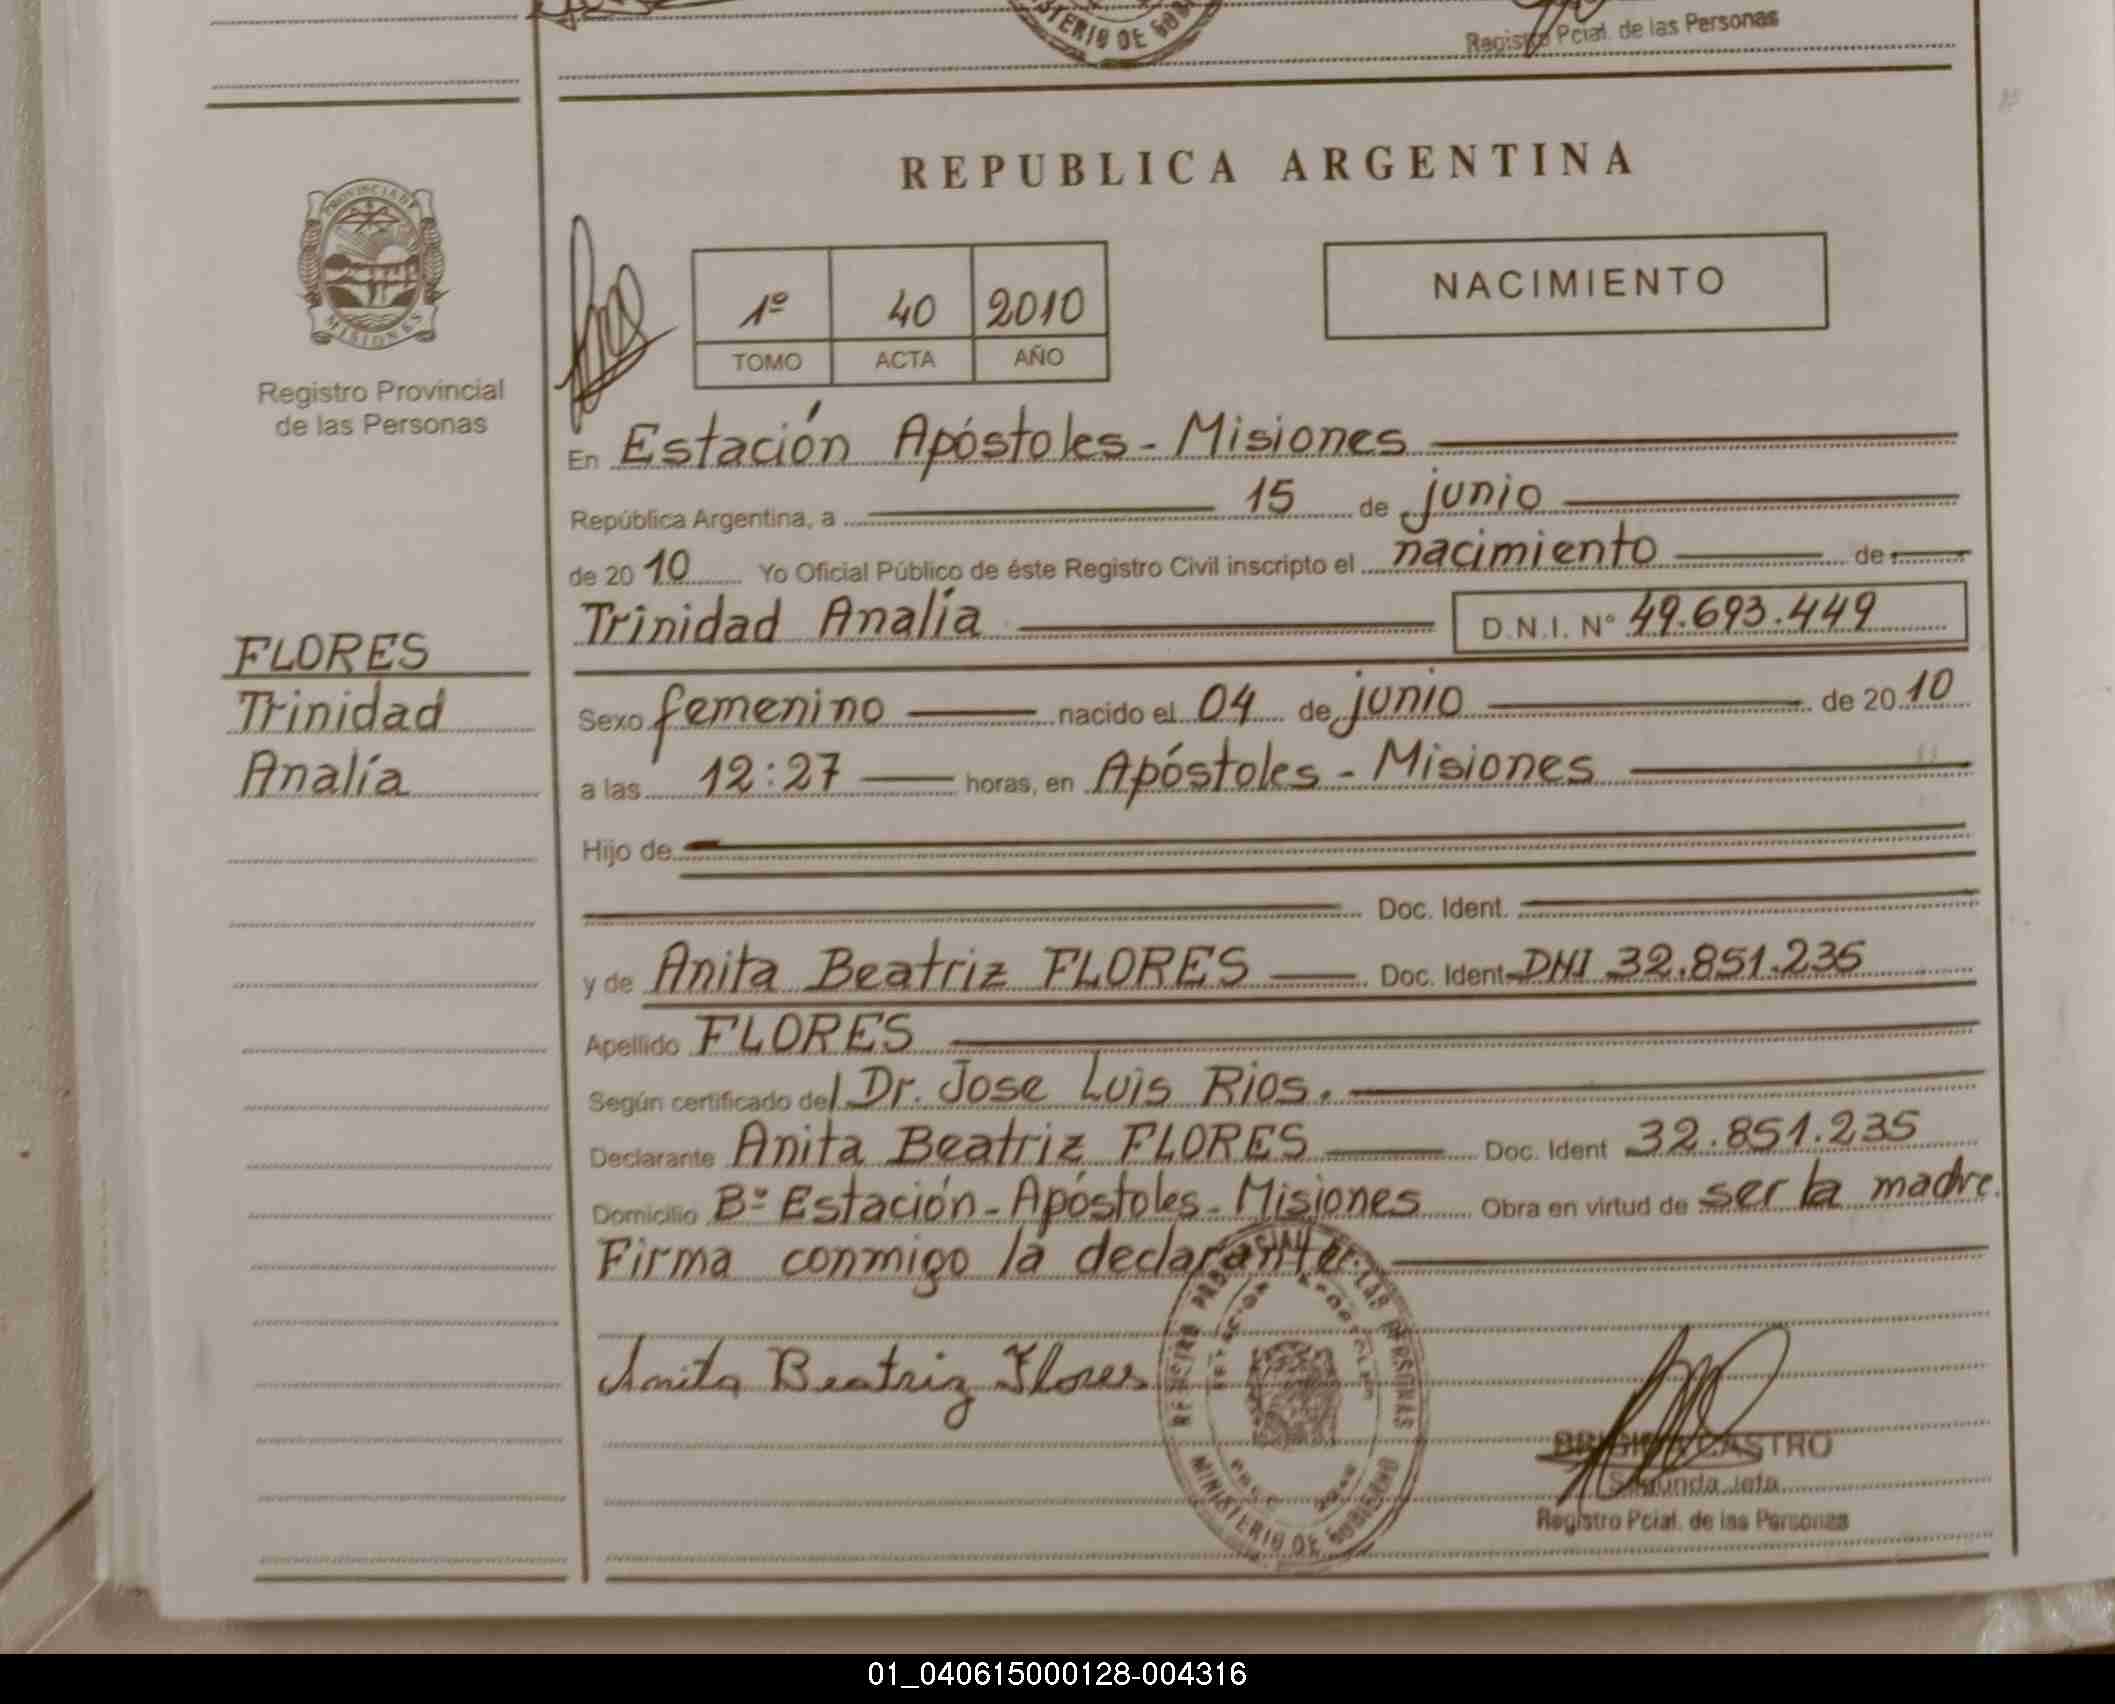 MINISTERIO DE GOB
Registro Pcial. de las Personas
REPUBLICA ARGENTINA
PROVINCIA DE
MISIONES
Registro Provincial
de las Personas
1º 40 2010
TOMO ACTA AÑO
NACIMIENTO
En Estación Apóstoles - Misiones
República Argentina, a 15 de junio
de 2010 Yo Oficial Público de éste Registro Civil inscripto el nacimiento de
Trinidad Analía D.N.I. Nº 49.693.449
FLORES
Trinidad
Analía
Sexo femenino nacido el 04 de junio de 2010
a las 12:27 horas, en Apóstoles - Misiones
Hijo de
Doc. Ident.
y de Anita Beatriz FLORES Doc. Ident DNI 32.851.235
Apellido FLORES
Según certificado del Dr. Jose Luis Rios.
Declarante Anita Beatriz FLORES Doc. Ident 32.851.235
Domicilio Bº Estación - Apóstoles - Misiones Obra en virtud de ser la madre.
Firma conmigo la declarante.
Anita Beatriz Flores
REGISTRO PROVINCIAL DE LAS PERSONAS
MINISTERIO DE GOBIERNO
BRIGIDA CASTRO
Segunda Jefa
Registro Pcial. de las Personas
01_040615000128-004316